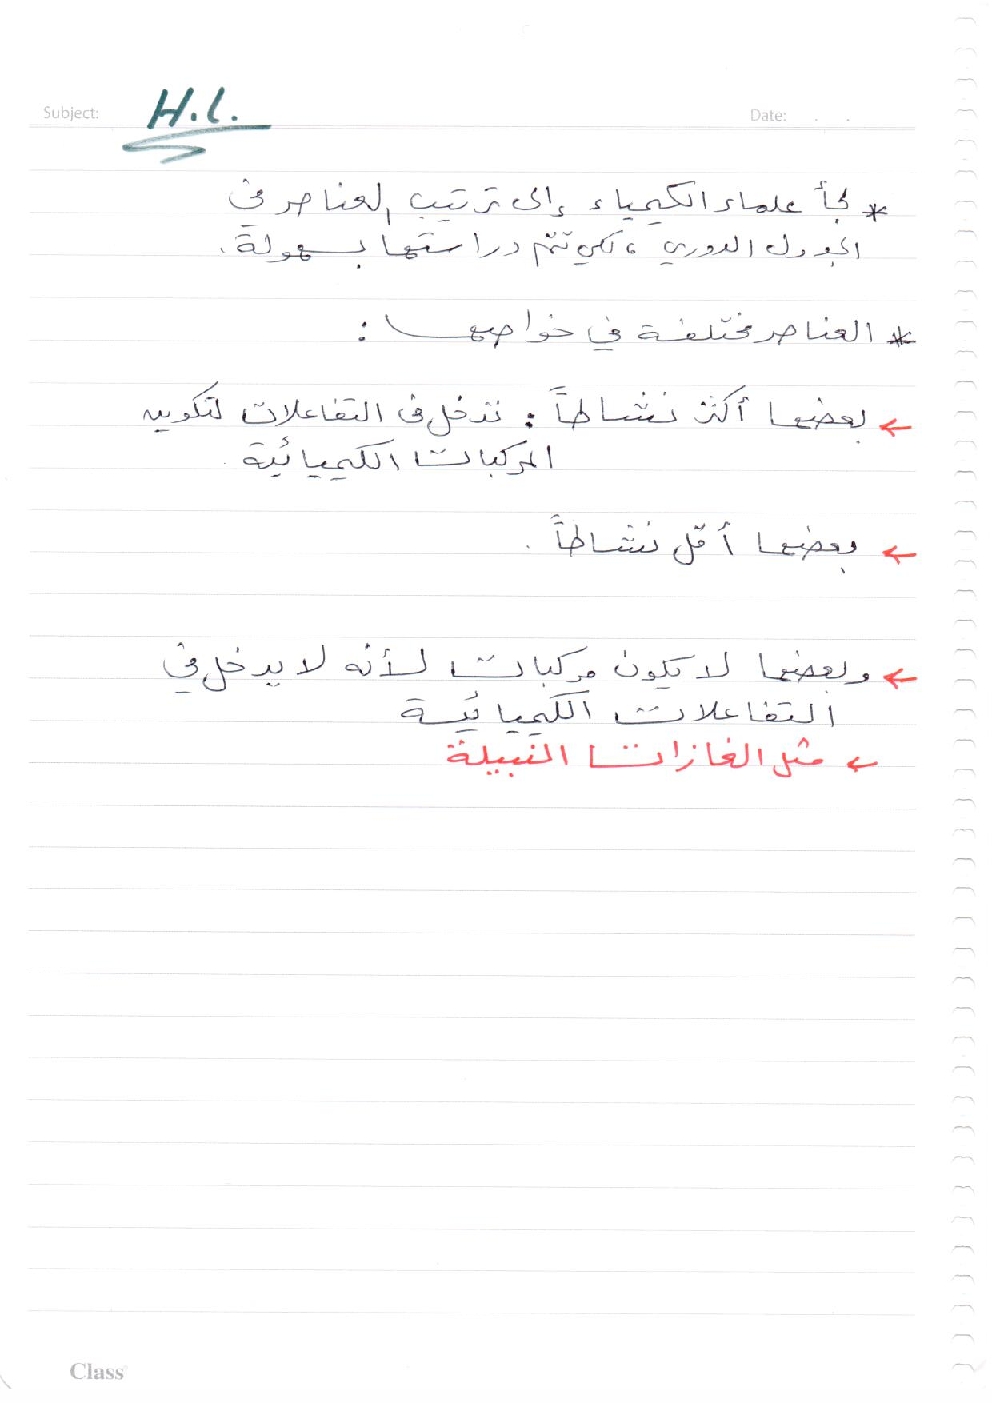 Subject: H.L. Date: . .
* لجأ علماء الكيمياء إلى ترتيب العناصر في
الجدول الدوري ، لكي تتم دراستها بسهولة.
* العناصر مختلفة في خواصها :
← بعضها أكثر نشاطاً : تدخل في التفاعلات لتكوين
المركبات الكيميائية .
← بعضها أقل نشاطاً .
← وبعضها لا يكون مركبات لأنه لا يدخل في
التفاعلات الكيميائية
← مثل الغازات النبيلة
Class